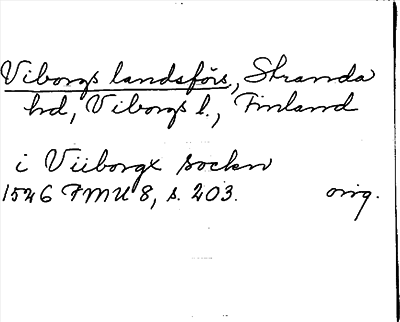 Viborgs landsförs, Stranda
hd, Viborgs l., Finland
i Viiborgx socken
1526 FMU 8, s. 203. orig.